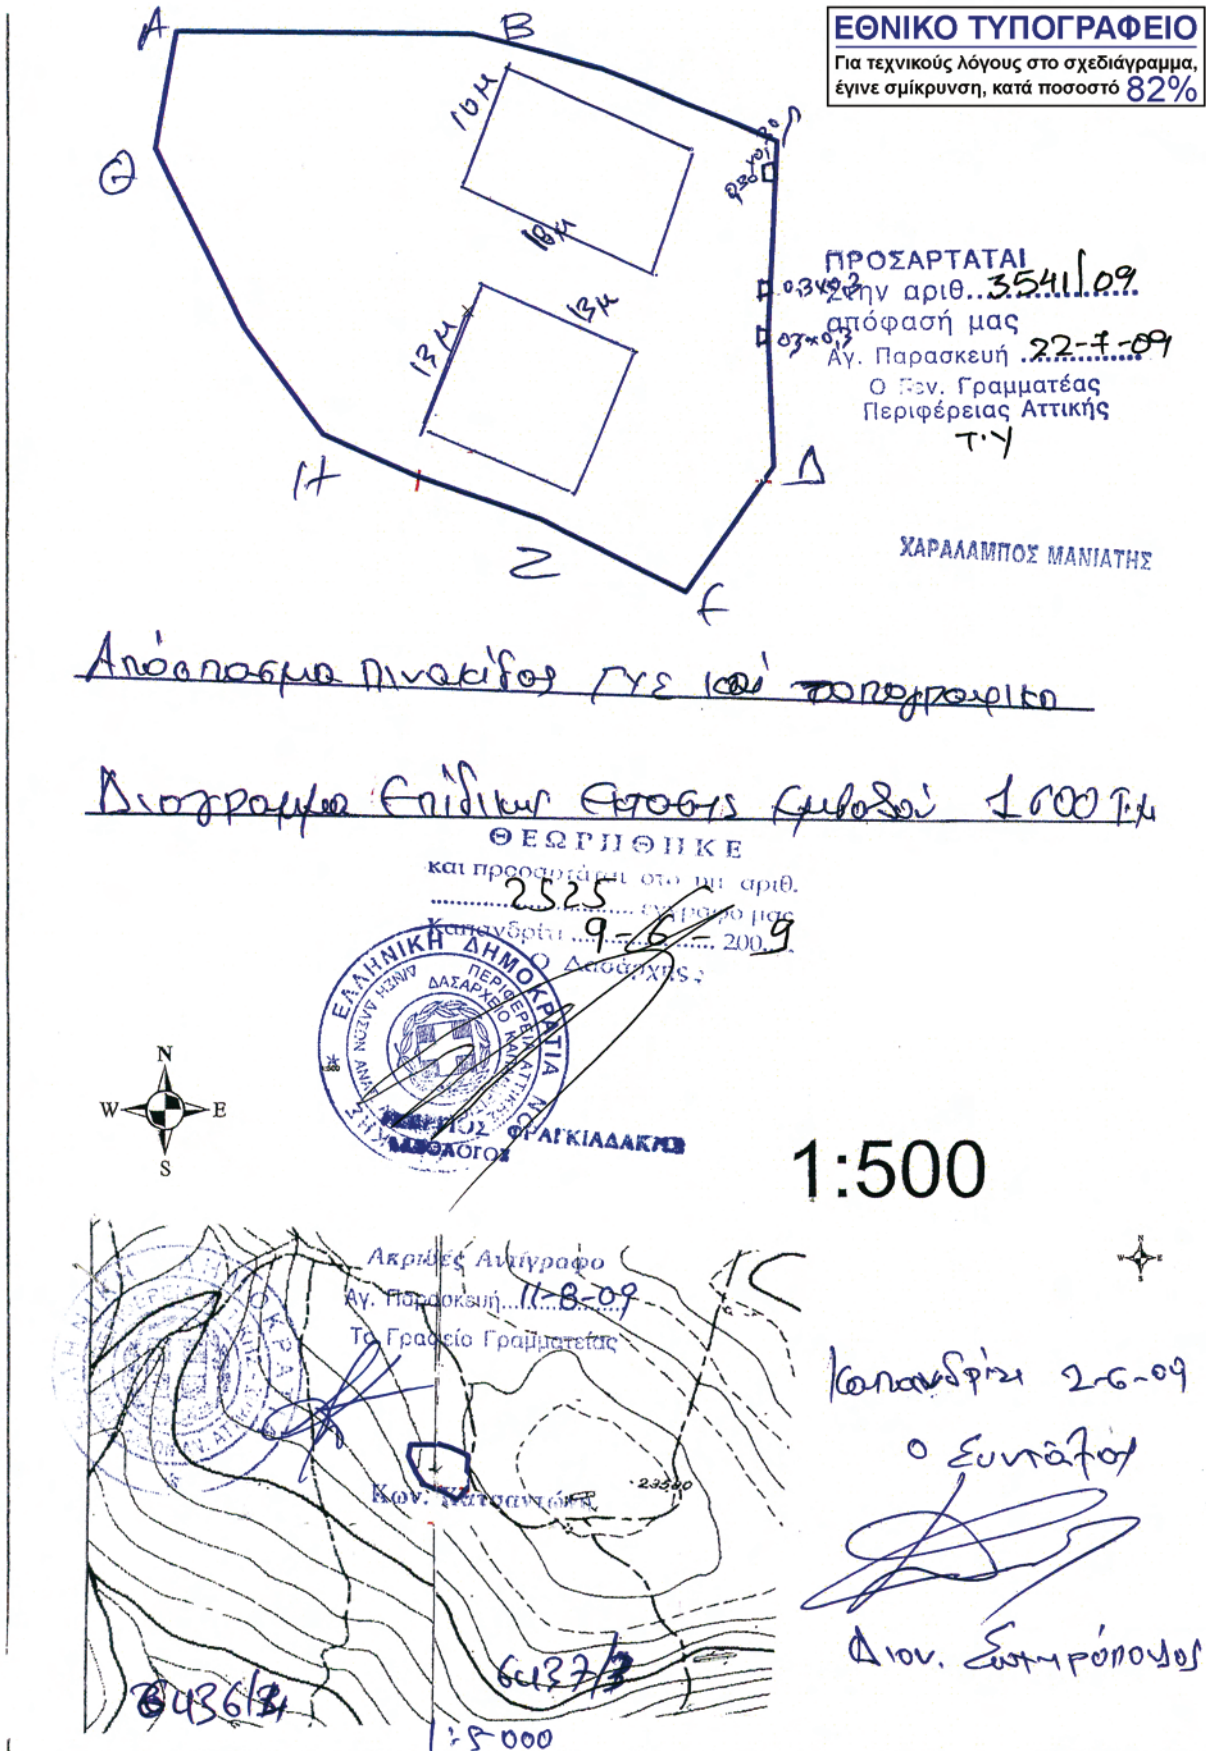 ΕΘΝΙΚΟ ΤΥΠΟΓΡΑΦΕΙΟ
Για τεχνικούς λόγους στο σχεδιάγραμμα,
έγινε σμίκρυνση, κατά ποσοστό 82%
Α
Β
Γ
Θ
10 μ
18 μ
0,30 × 0,30
0,3×0,3
0,3×0,3
13 μ
13 μ
Η
Δ
Ζ
Ε
ΠΡΟΣΑΡΤΑΤΑΙ
Στην αριθ. 3541/09
απόφασή μας
Αγ. Παρασκευή 22-7-09
Ο Γεν. Γραμματέας
Περιφέρειας Αττικής
Τ.Υ
ΧΑΡΑΛΑΜΠΟΣ ΜΑΝΙΑΤΗΣ
Απόσπασμα πινακίδος ΓΥΣ και τοπογραφικο
Διαγραμμα Επίδικης Εκτασης Εμβαδού 1600 Τ.μ
ΘΕΩΡΗΘΗΚΕ
και προσαρτάται στο υπ' αριθ.
2525 έγγραφο μας
Καπανδρίτι 9-6- 2009
Ο Δασάρχης
ΕΛΛΗΝΙΚΗ ΔΗΜΟΚΡΑΤΙΑ
ΠΕΡΙΦΕΡΕΙΑ ΑΤΤΙΚΗΣ
ΔΑΣΑΡΧΕΙΟ
ΦΡΑΓΚΙΑΔΑΚΗΣ
N
W E
S
1:500
N
W E
S
Ακριβές Αντίγραφο
Αγ. Παρασκευή 11-8-09
Το Γραφείο Γραμματείας
Κων. Κατσαντώνη
6436/
6437/3
1:5000
Καπανδρίτι 2-6-09
Ο Συντάξας
Διον. Σωτηρόπουλος